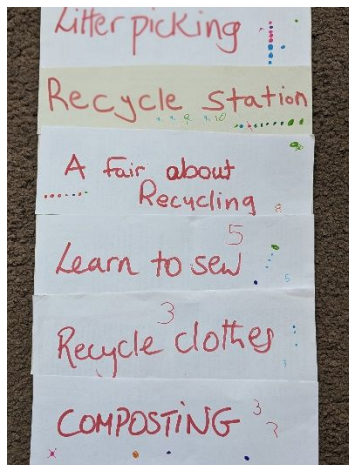 Litter picking
Recycle station
9 10
A fair about
Recycling
8
5
Learn to sew
5
3
Recycle clothes
COMPOSTING 3